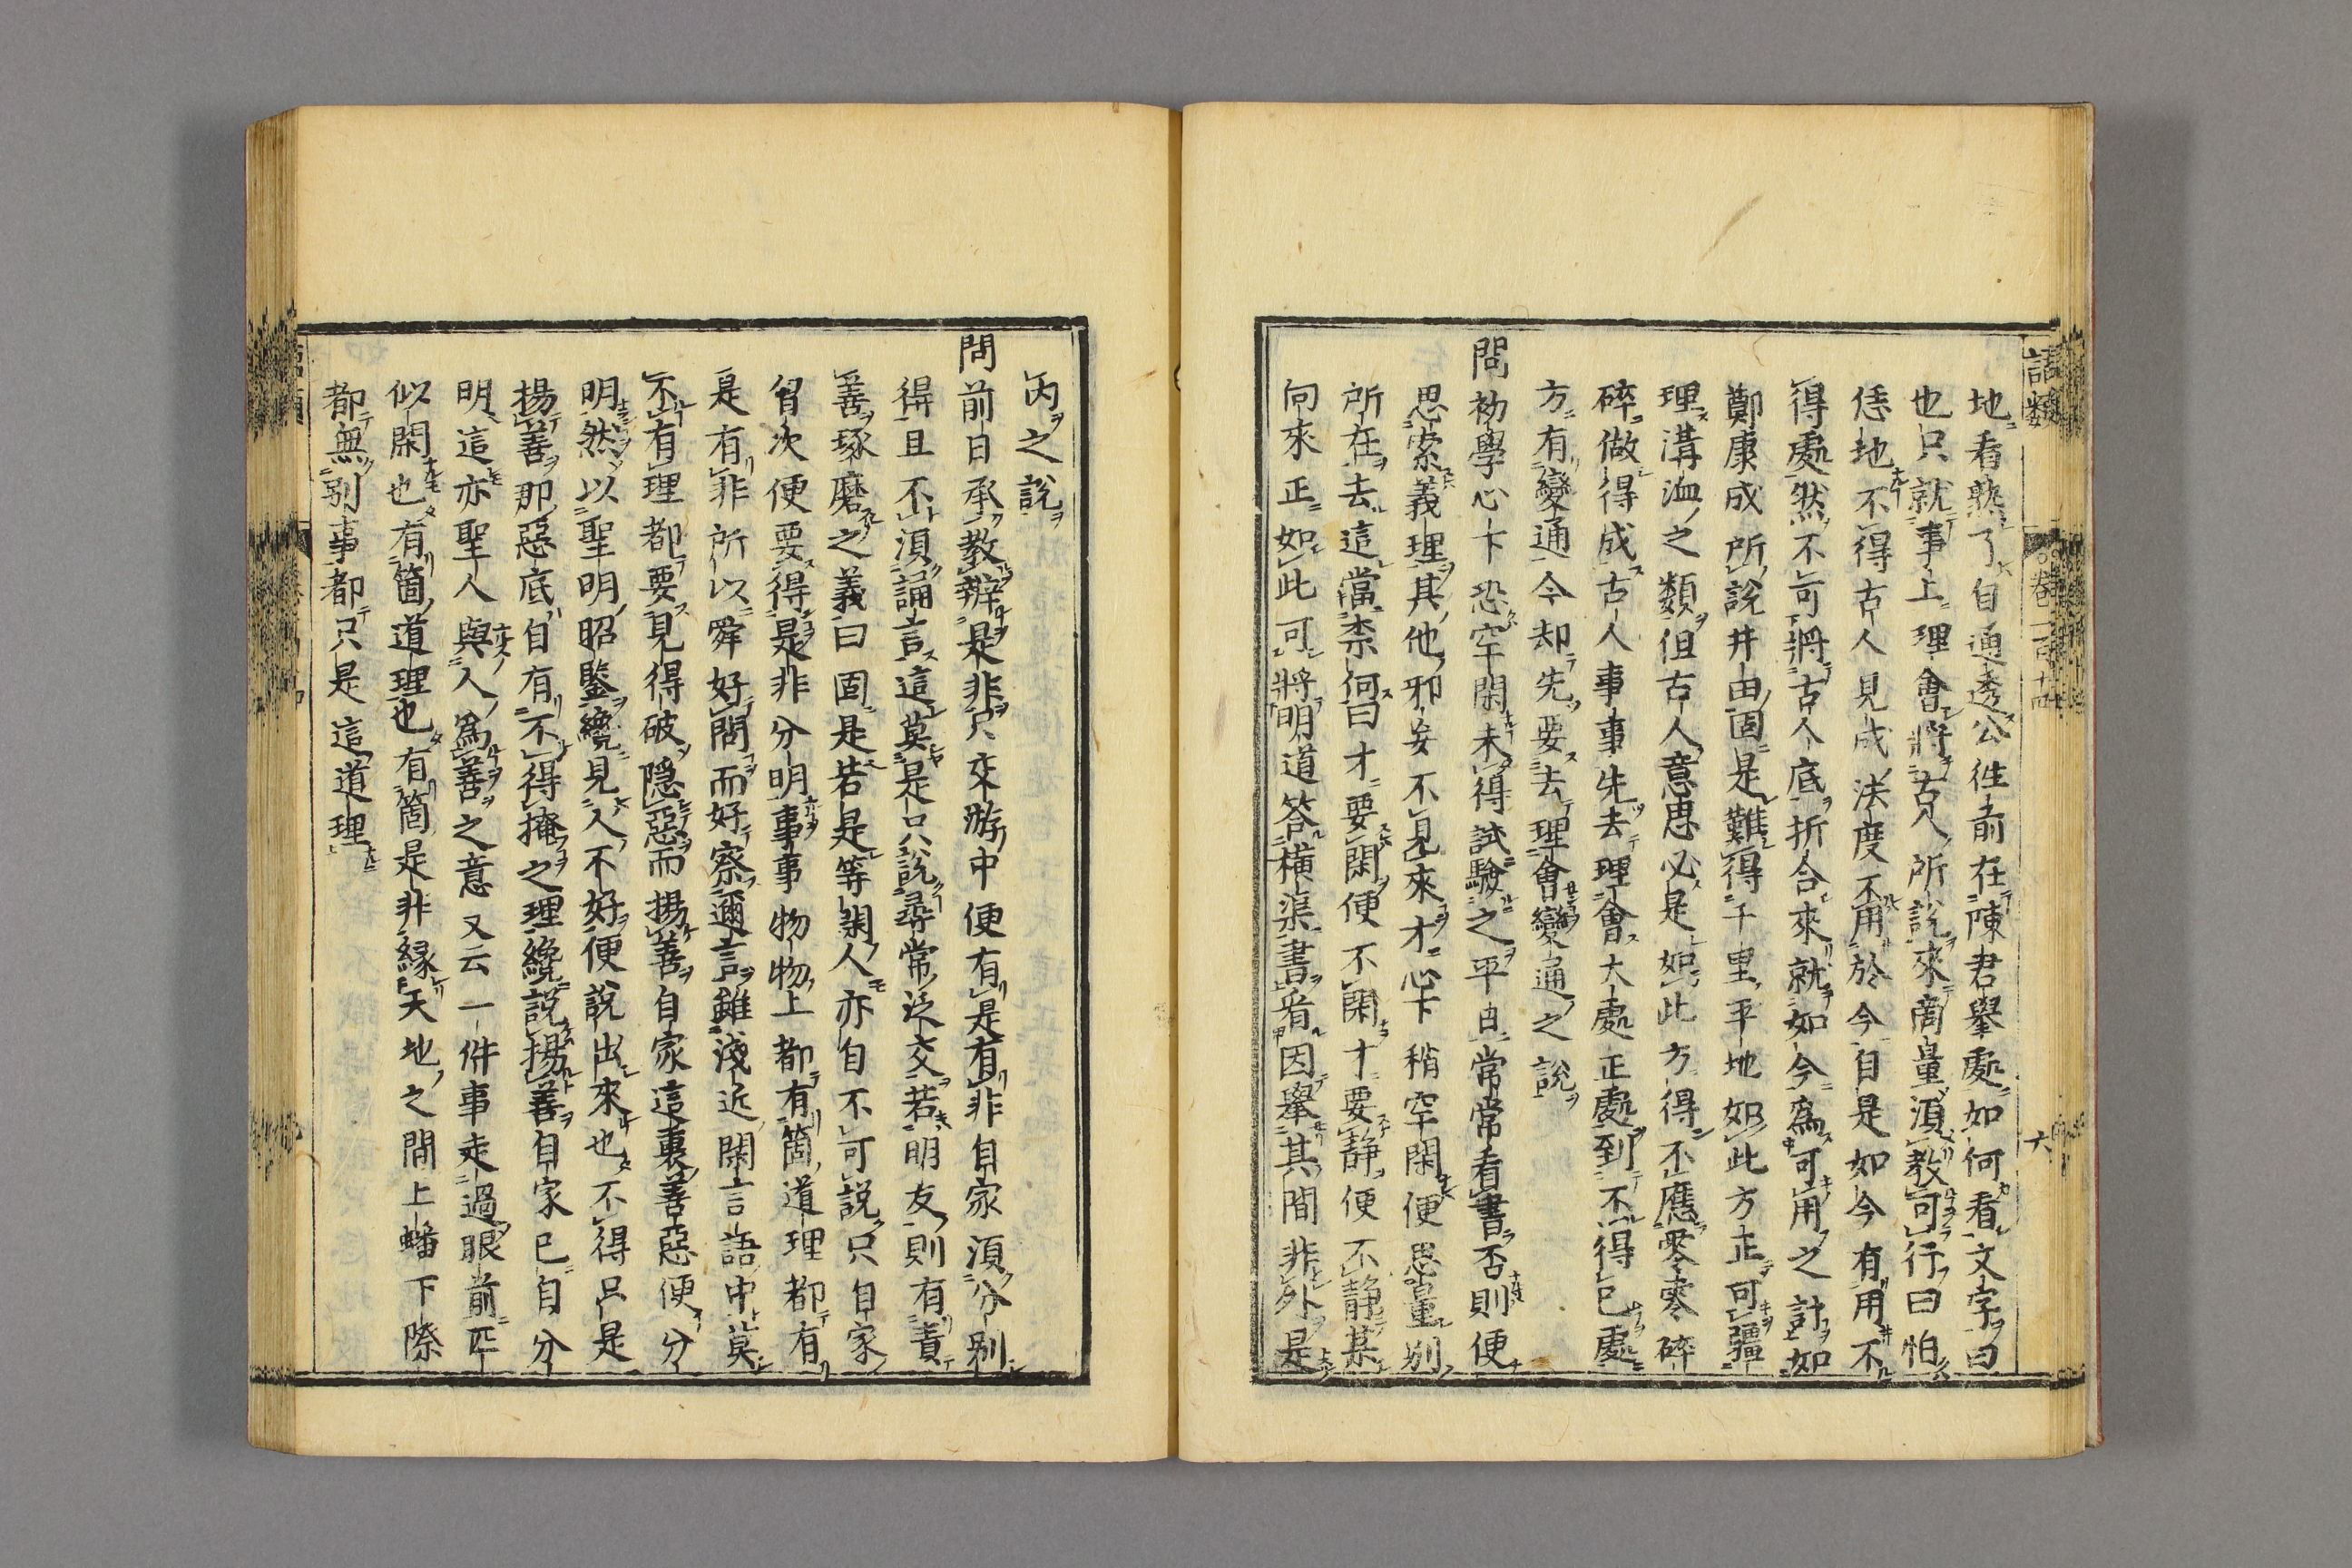 語類
卷一百十四
六
地看熟了自通透公徃前在陳君擧處如何看文字曰
也只就事上理會將古人所說來商量湏教可行曰怕
恁地不得古人見成法度不用於今自是如今有用不
得處然不可將古人底折合來就如今爲可用之計如
鄭康成所說井田固是難得千里平地如此方正可疆
理溝洫之類但古人意思必是如此方得不應零零碎
碎做得成古人事事先去理會大處正處到不得已處
方有變通今却先要去理會變通之說
問初學心下恐空閑未得試驗之平日常常看書否則便
思索義理其他邪妄不見來才心下稍空閑便思量别
所在去這當柰何曰才要閑便不閑才要静便不静某
向來正如此可將明道答横渠書看因擧其間非外是
内之說
問前日承教辨是非只交游中便有是有非自家湏分别
得且不湏誦言這莫是只說尋常泛交若朋友則有責
善琢磨之義曰固是若是等閑人亦自不可說只自家
胷次便要得是非分明事事物物上都有箇道理都有
是有非所以舜好問而好察邇言雖淺近閑言語中莫
不有理都要見得破隐惡而揚善自家這裏善惡便分
明然以聖明昭鑒纔見人不好便說出來也不得只是
揚善那惡底自有不得掩之理纔說揚善自家已自分
明這亦聖人與人爲善之意又云一件事走過眼前匹
似閑也有箇道理也有箇是非緣天地之間上蟠下際
都無别事都只是這道理